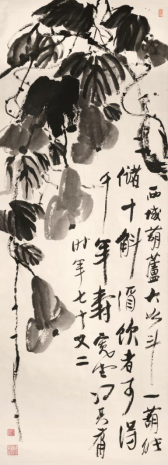 西域葫蘆大如斗一葫能
儲十斛酒飲者可得
千年壽
時年七十又二